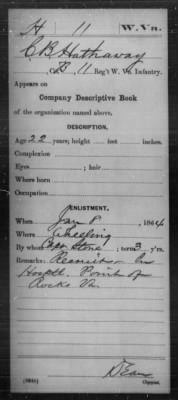 H 11 W. Vn.
C B Hathaway
Co. B, 11 Reg't W. Vn. Infantry.
Appears on
Company Descriptive Book
of the organization named above.
DESCRIPTION.
Age 22 years; height feet inches.
Complexion
Eyes ; hair
Where born
Occupation
ENLISTMENT.
When Jan 8, 1864
Where Wheeling
By whom Capt Stone; term 3 y'rs.
Remarks: Recruit In
Hospt. Point of
Rocks Va
Dean
Copyist.